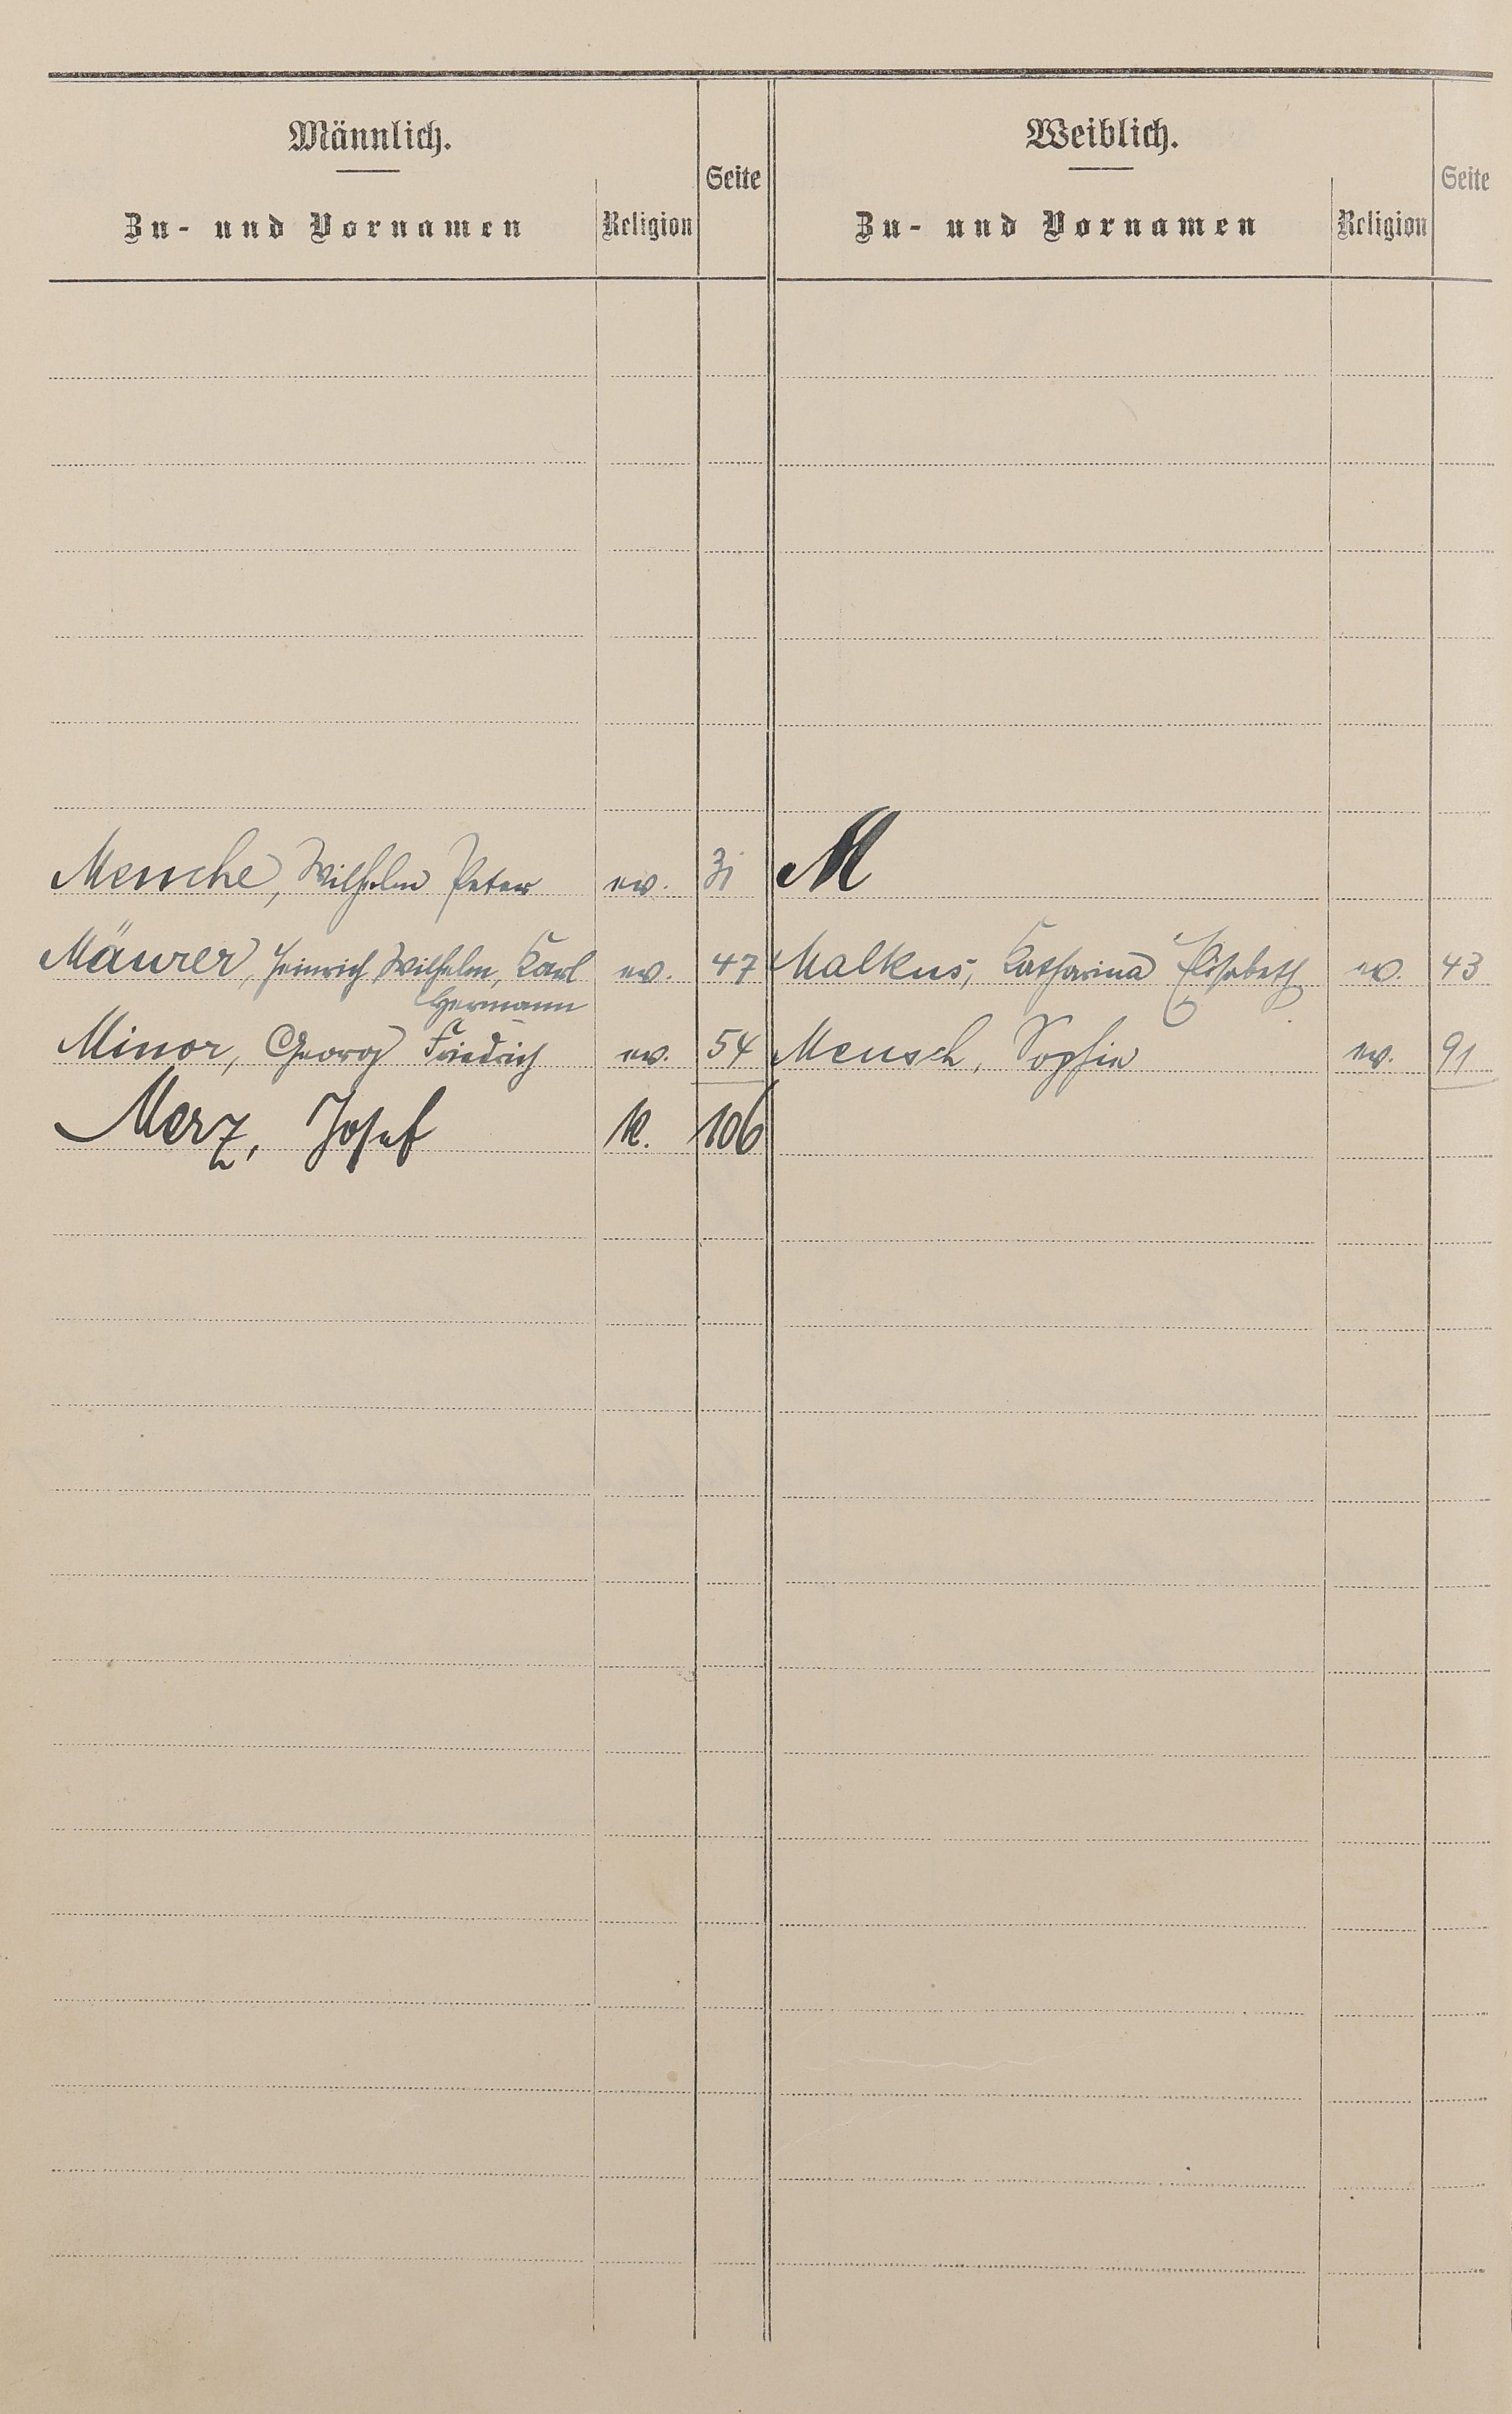 Männlich.
Zu- und Vornamen
Religion
Seite
Weiblich.
Zu- und Vornamen
Religion
Seite
Mensche, Wilhelm Peter ev. 31
M
Mäurer, Heinrich, Wilhelm, Karl ev. 47
Hermann
Malkus, Katharina Elisabeth ev. 43
Minor, Georg Friedrich ev. 54
Mensch, Sophie ev. 91
Merz, Josef k. 106